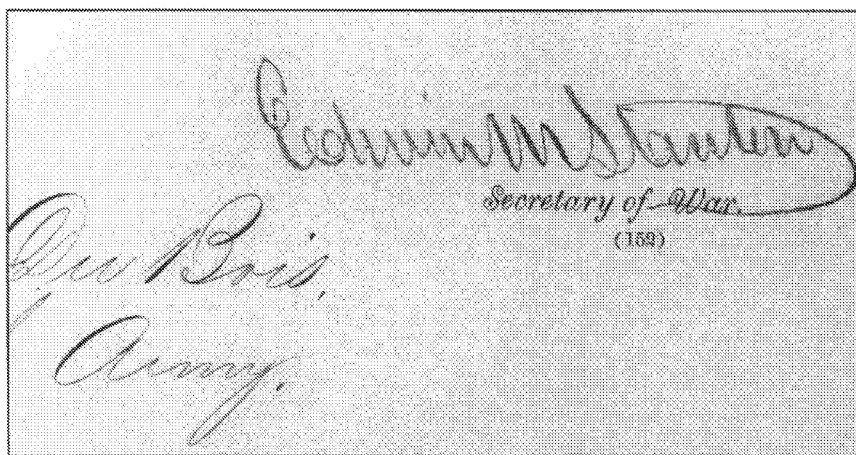 Edwin M Stanton
Secretary of War.
(152)
Du Bois,
Army.